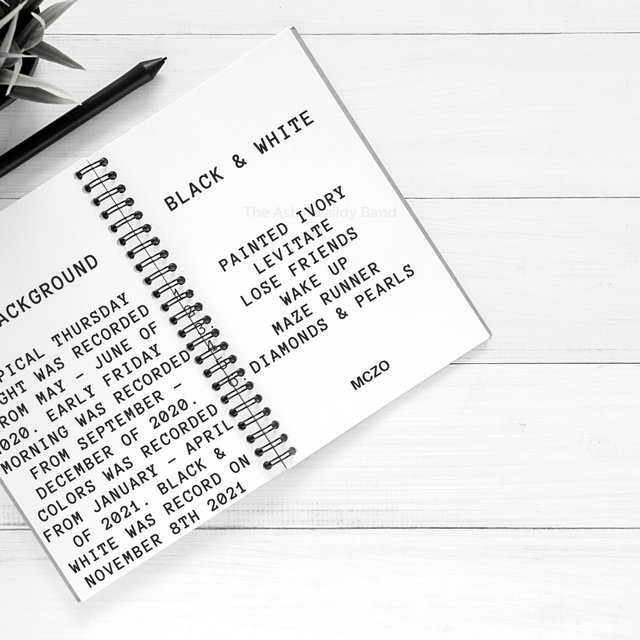 ACKGROUND
PICAL THURSDAY
GHT WAS RECORDED
ROM MAY – JUNE OF
020. EARLY FRIDAY
MORNING WAS RECORDED
FROM SEPTEMBER –
DECEMBER OF 2020.
COLORS WAS RECORDED
FROM JANUARY – APRIL
OF 2021. BLACK &
WHITE WAS RECORD ON
NOVEMBER 8TH 2021
BLACK & WHITE
The Band
PAINTED IVORY
LEVITATE
LOSE FRIENDS
WAKE UP
MAZE RUNNER
DIAMONDS & PEARLS
MCZO